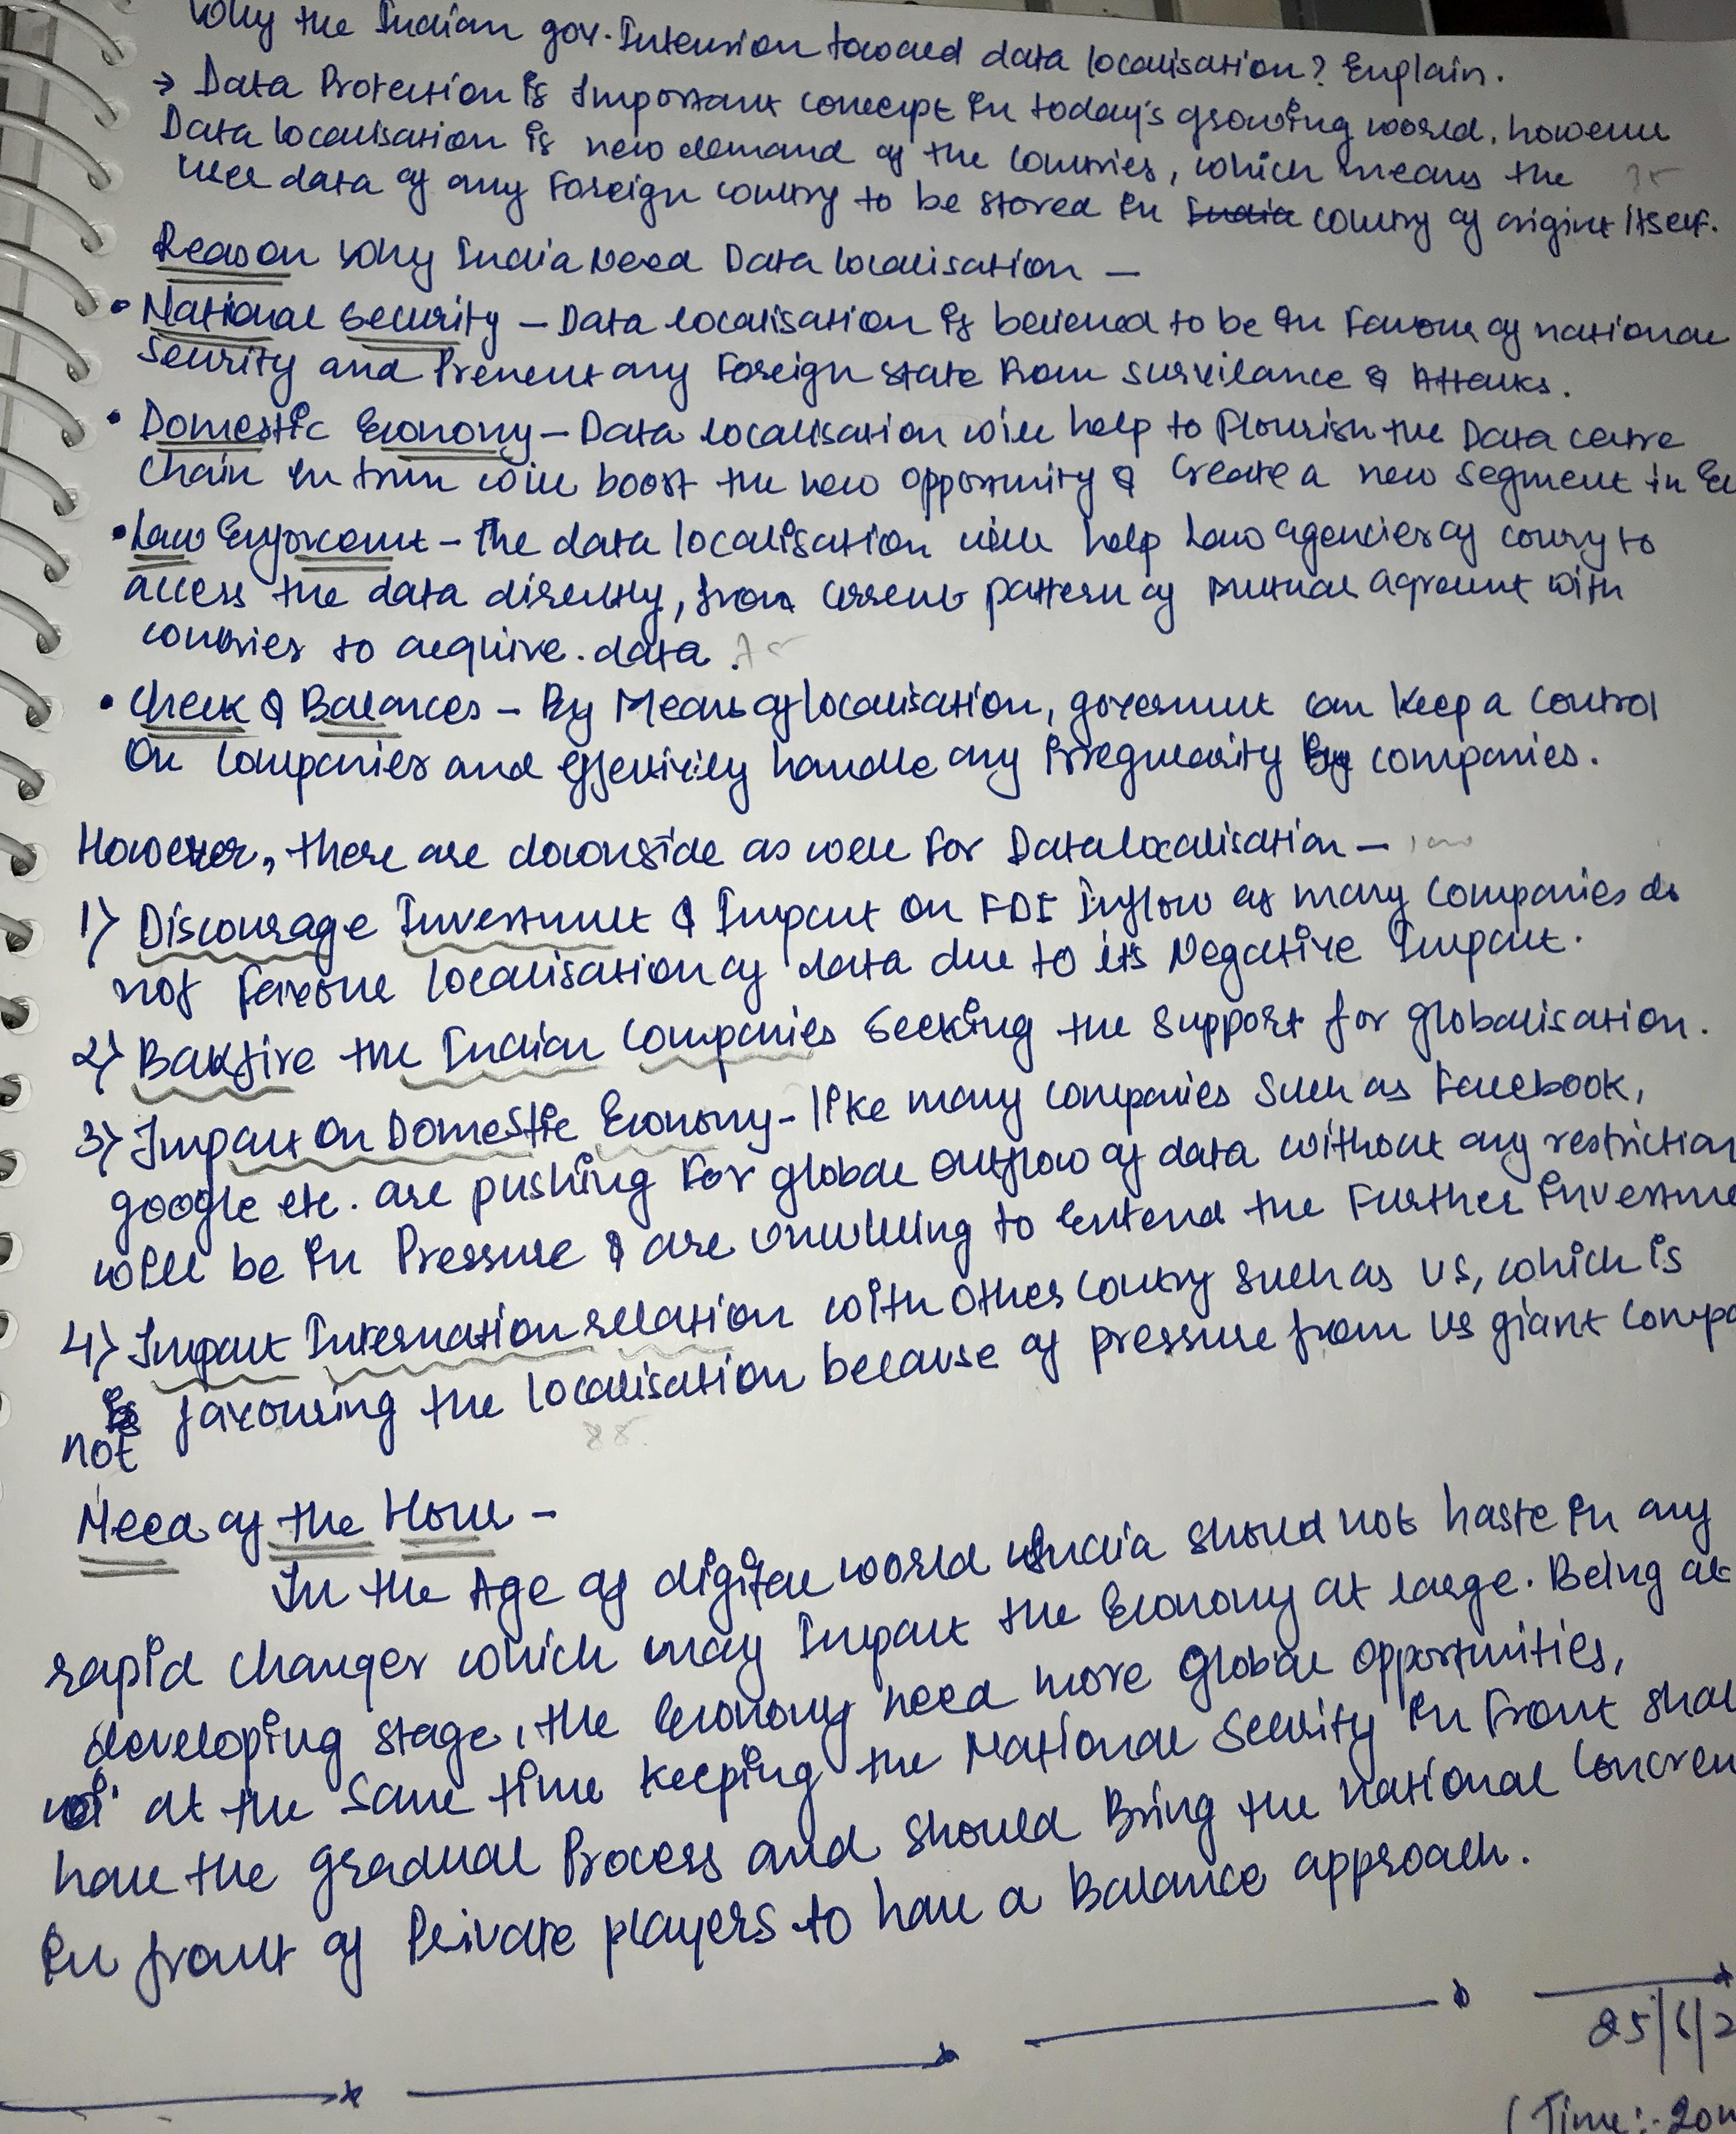 Why the Indian gov. Intension toward data localisation? Explain.
→ Data Protection is Important concept in today's growing world, however
Data localisation is new demand of the countries, which means the
user data of any Foreign country to be stored in India country of origin itself.
Reason why India Need Data localisation —
• National Security — Data localisation is believed to be in Favour of national
Security and Prevent any Foreign state from survilance & Attacks.
• Domestic Economy — Data localisation will help to Flourish the Data centre
Chain in turn will boost the new opportunity & Create a new segment in
• Law Enforcemnt — The data localisation will help Law agencies of counry to
access the data directly, from current pattern of mutual agreemnt with
countries to acquire data.
• Check & Balances — By Means of localisation, government can keep a control
On Companies and effectively handle any irregularity by companies.
However, there are downside as well for Data localisation —
1) Discourage Investment & Impact on FDI Inflow as many companies do
not favour localisation of data due to its Negative Impact.
2) Backfire the Indian Companies seeking the support for globalisation.
3) Impact on Domestic Economy - like many companies such as Facebook,
google etc. are pushing for global outflow of data without any restriction
will be in Pressure & are unwilling to extend the Further
4) Impact Internation relation with other country such as US, which is
favouring the localisation because of pressure from US giant
not
Need of the Hour —
In the Age of digital world India should not haste in any
rapid changes which may Impact the Economy at large. Being at
developing stage, the economy need more global opportunities,
at the same time keeping the National Security in Front
have the gradual Process and should Bring the national
in front of Private players to have a Balance approach.
25/6/2
(Time:- 20